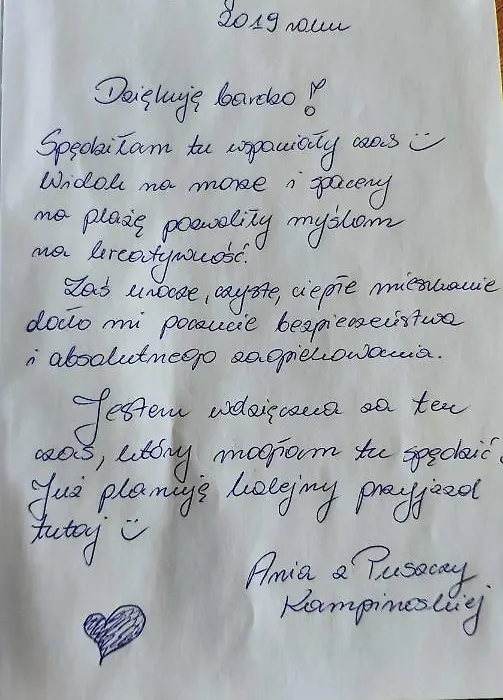 2019 roku
Dziękuję bardzo!
Spędziłam tu wspaniały czas :)
Widok na morze i spacery
na plażę pozwoliły myślom
na kreatywność.
Zaś urocze, czyste, ciepłe mieszkanie
dało mi poczucie bezpieczeństwa
i absolutnego zaopiekowania.
Jestem wdzięczna za ten
czas, który mogłam tu spędzić.
Już planuję kolejny przyjazd
tutaj :)
Ania z Puszczy
Kampinoskiej